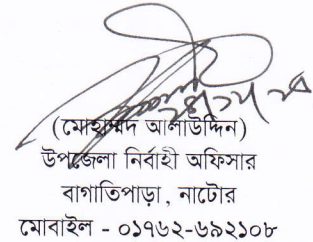 (মোহাম্মদ আলাউদ্দিন)
উপজেলা নির্বাহী অফিসার
বাগাতিপাড়া, নাটোর
মোবাইল - ০১৭৬২-৬৯২১০৮